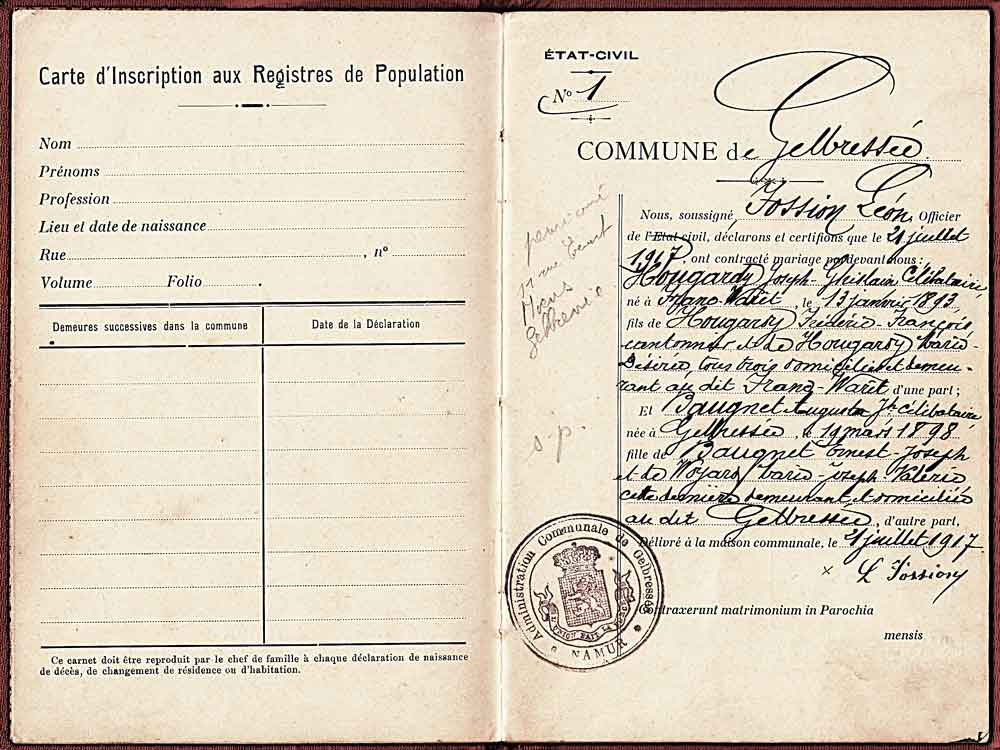 Carte d'Inscription aux Registres de Population
Nom
Prénoms
Profession
Lieu et date de naissance
Rue , n°
Volume Folio .
Demeures successives dans la commune
Date de la Déclaration
Ce carnet doit être reproduit par le chef de famille à chaque déclaration de naissance
de décès, de changement de résidence ou d'habitation.
ÉTAT-CIVIL
N° 1
COMMUNE de Gelbressée.
Nous, soussigné Fossion Léon, Officier
de l'Etat civil, déclarons et certifions que le 21 juillet
1917. ont contracté mariage pardevant nous :
Hougardy Joseph-Ghislain Célibataire
né à Franc-Waret, le 13 janvier 1893,
fils de Hougardy Frédéric-François,
cantonnier et de Hougardy Marie-
Désirée, tous trois domiciliés et demeu-
rant au dit Franc-Waret d'une part ;
Et Baugnet Augusta Jh. célibataire
née à Gelbressée, le 19 mars 1898
fille de Baugnet Ernest-Joseph
et de Noyard Marie-Joseph Valérie
cette dernière demeurant et domiciliée
au dit Gelbressée, d'autre part,
Délivré à la maison communale, le 21 juillet 1917.
× L Fossion
Contraxerunt matrimonium in Parochia
mensis
pensionné
rue
Gelbressée
s.p.
Administration Communale de Gelbressée
NAMUR